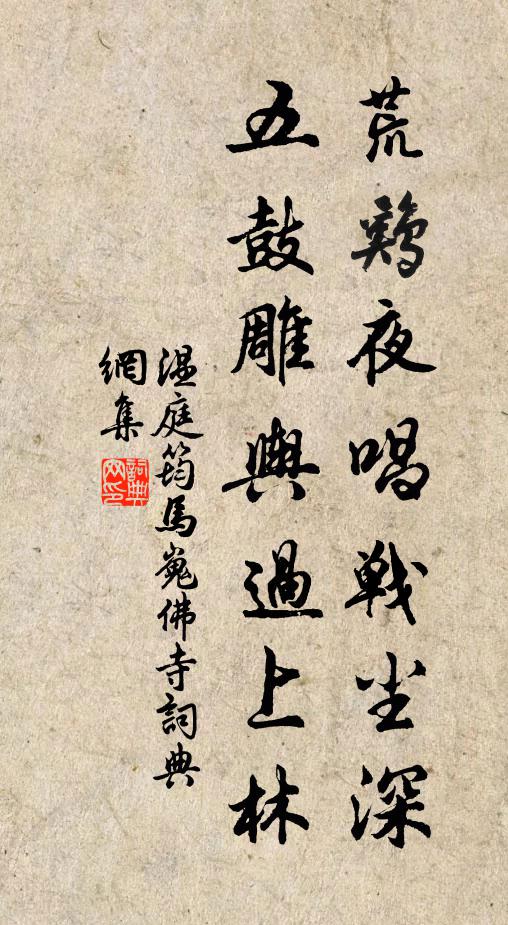 荒鶏夜唱戦尘深
五鼓雕輿過上林
温庭筠馬嵬佛寺詞典
網集
詞典网印